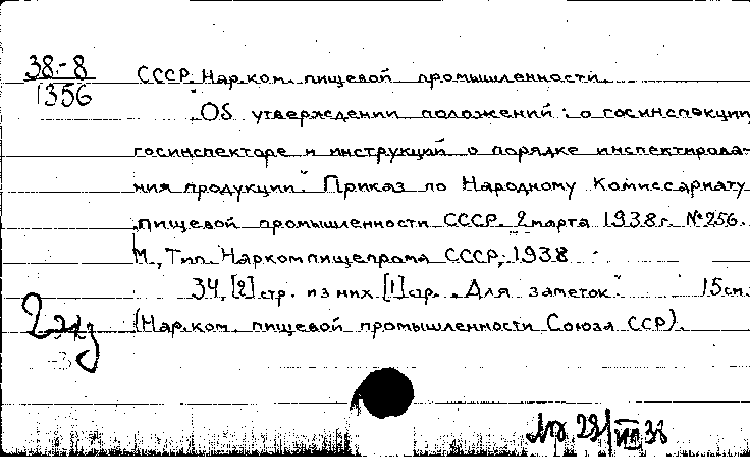 38-8
1356
СССР. Нар.ком. пищевой промышленности.
"Об утверждении положений: о госинспекции,
госинспекторе и инструкций о порядке инспектирова-
ния продукции". Приказ по Народному Комиссариату
пищевой промышленности СССР. 2 марта 1938 г. №256.
М., Тип. Наркомпищепрома СССР, 1938
34, [2] стр. из них [1] стр. "Для заметок". 15 см.
(Нар.ком. пищевой промышленности Союза ССР).
2 экз
28/VIII 38